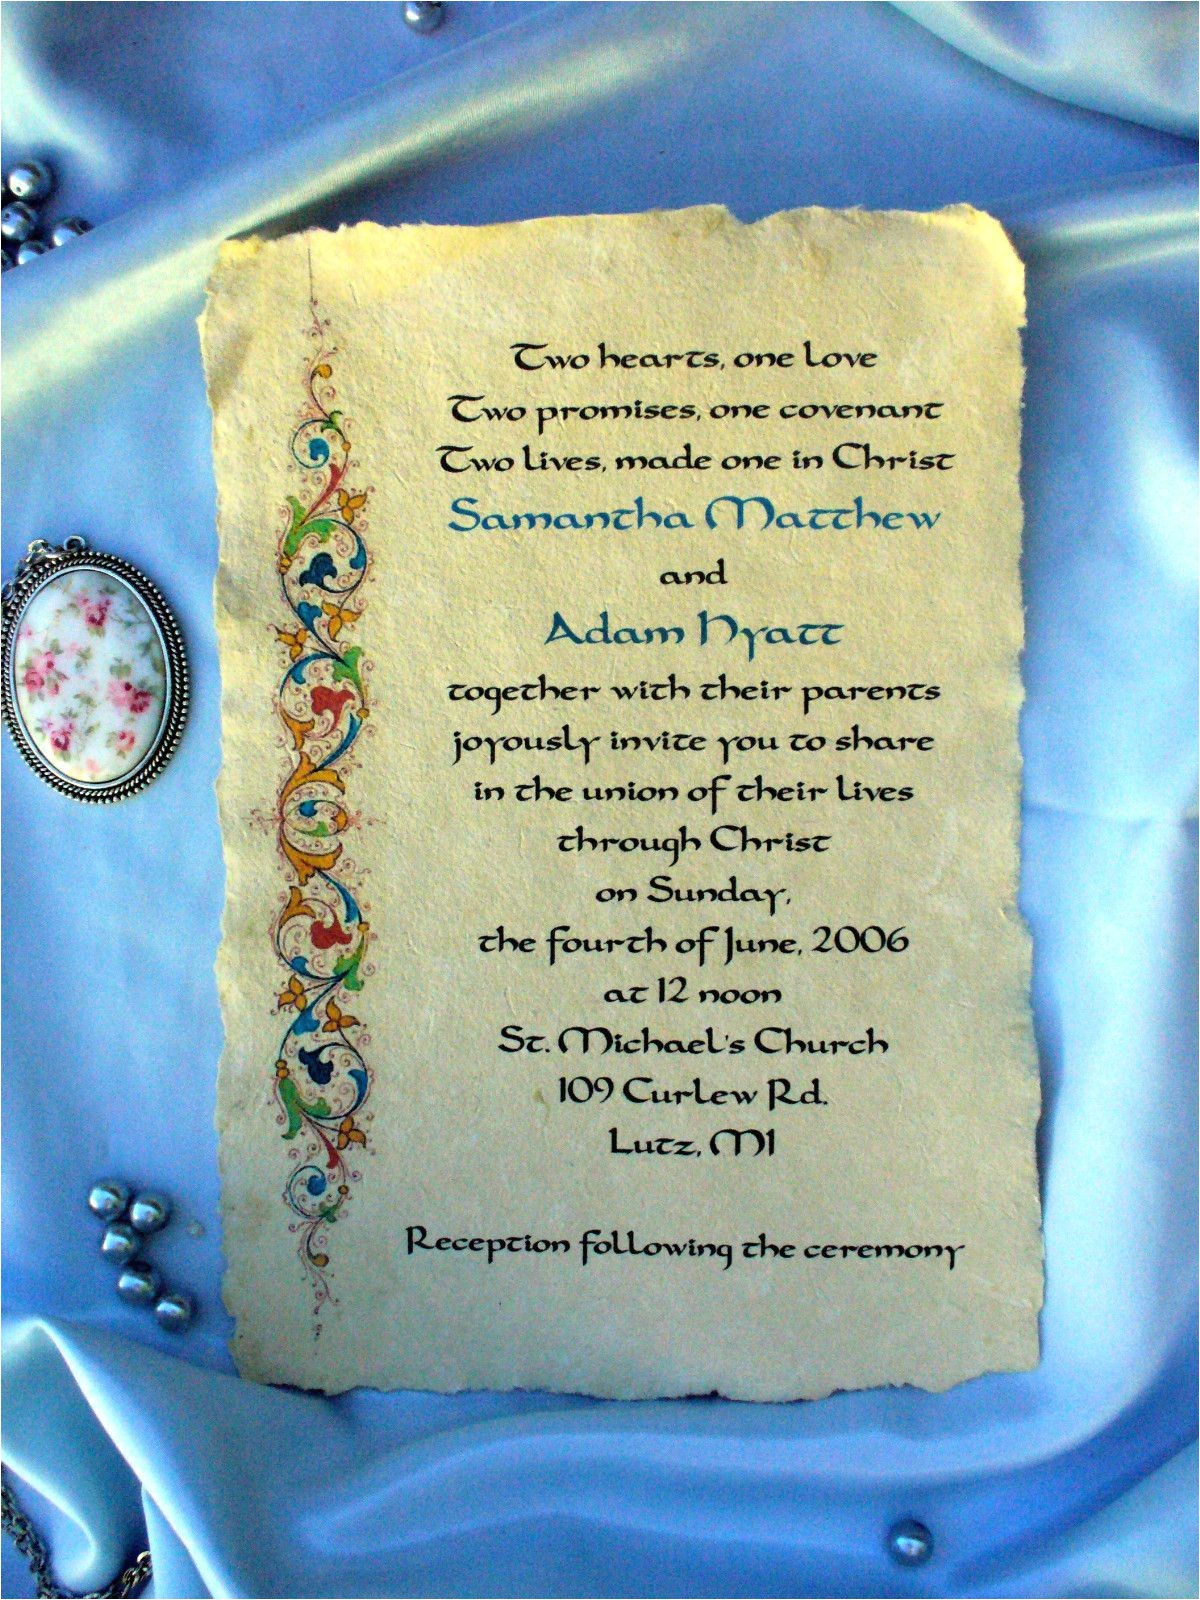 Two hearts, one love
Two promises, one covenant
Two lives, made one in Christ
Samantha Matthew
and
Adam Hyatt
together with their parents
joyously invite you to share
in the union of their lives
through Christ
on Sunday,
the fourth of June, 2006
at 12 noon
St. Michael's Church
109 Curlew Rd.
Lutz, MI
Reception following the ceremony